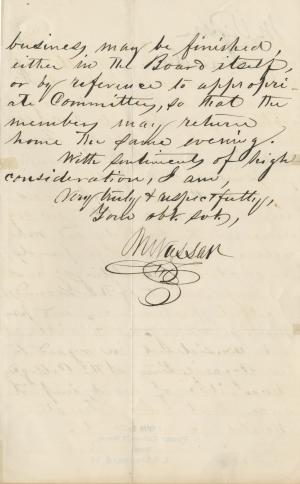 business, may be finished,
either in the Board itself,
or by reference to appropri-
ate Committees, so that the
members may return
home the same evening.
With sentiments of high
consideration, I am,
Very truly & respectfully,
Your obt. svt,
M Vassar